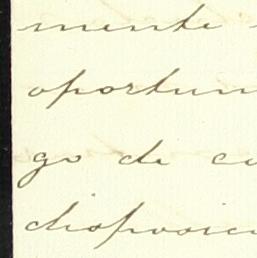 mente
oportun
go de co
disposici